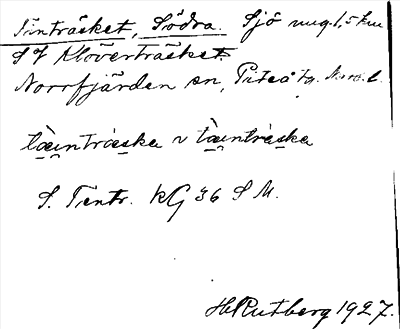 Tinträsket, Södra. Sjö ung. 1,5 km
S of Klöverträsket.
Norrfjärden sn, Piteå tg. Norrb. l.
tàintràska ~ tàintràska
S. Tintr. kG 36 S M.
H Rutberg 1927.